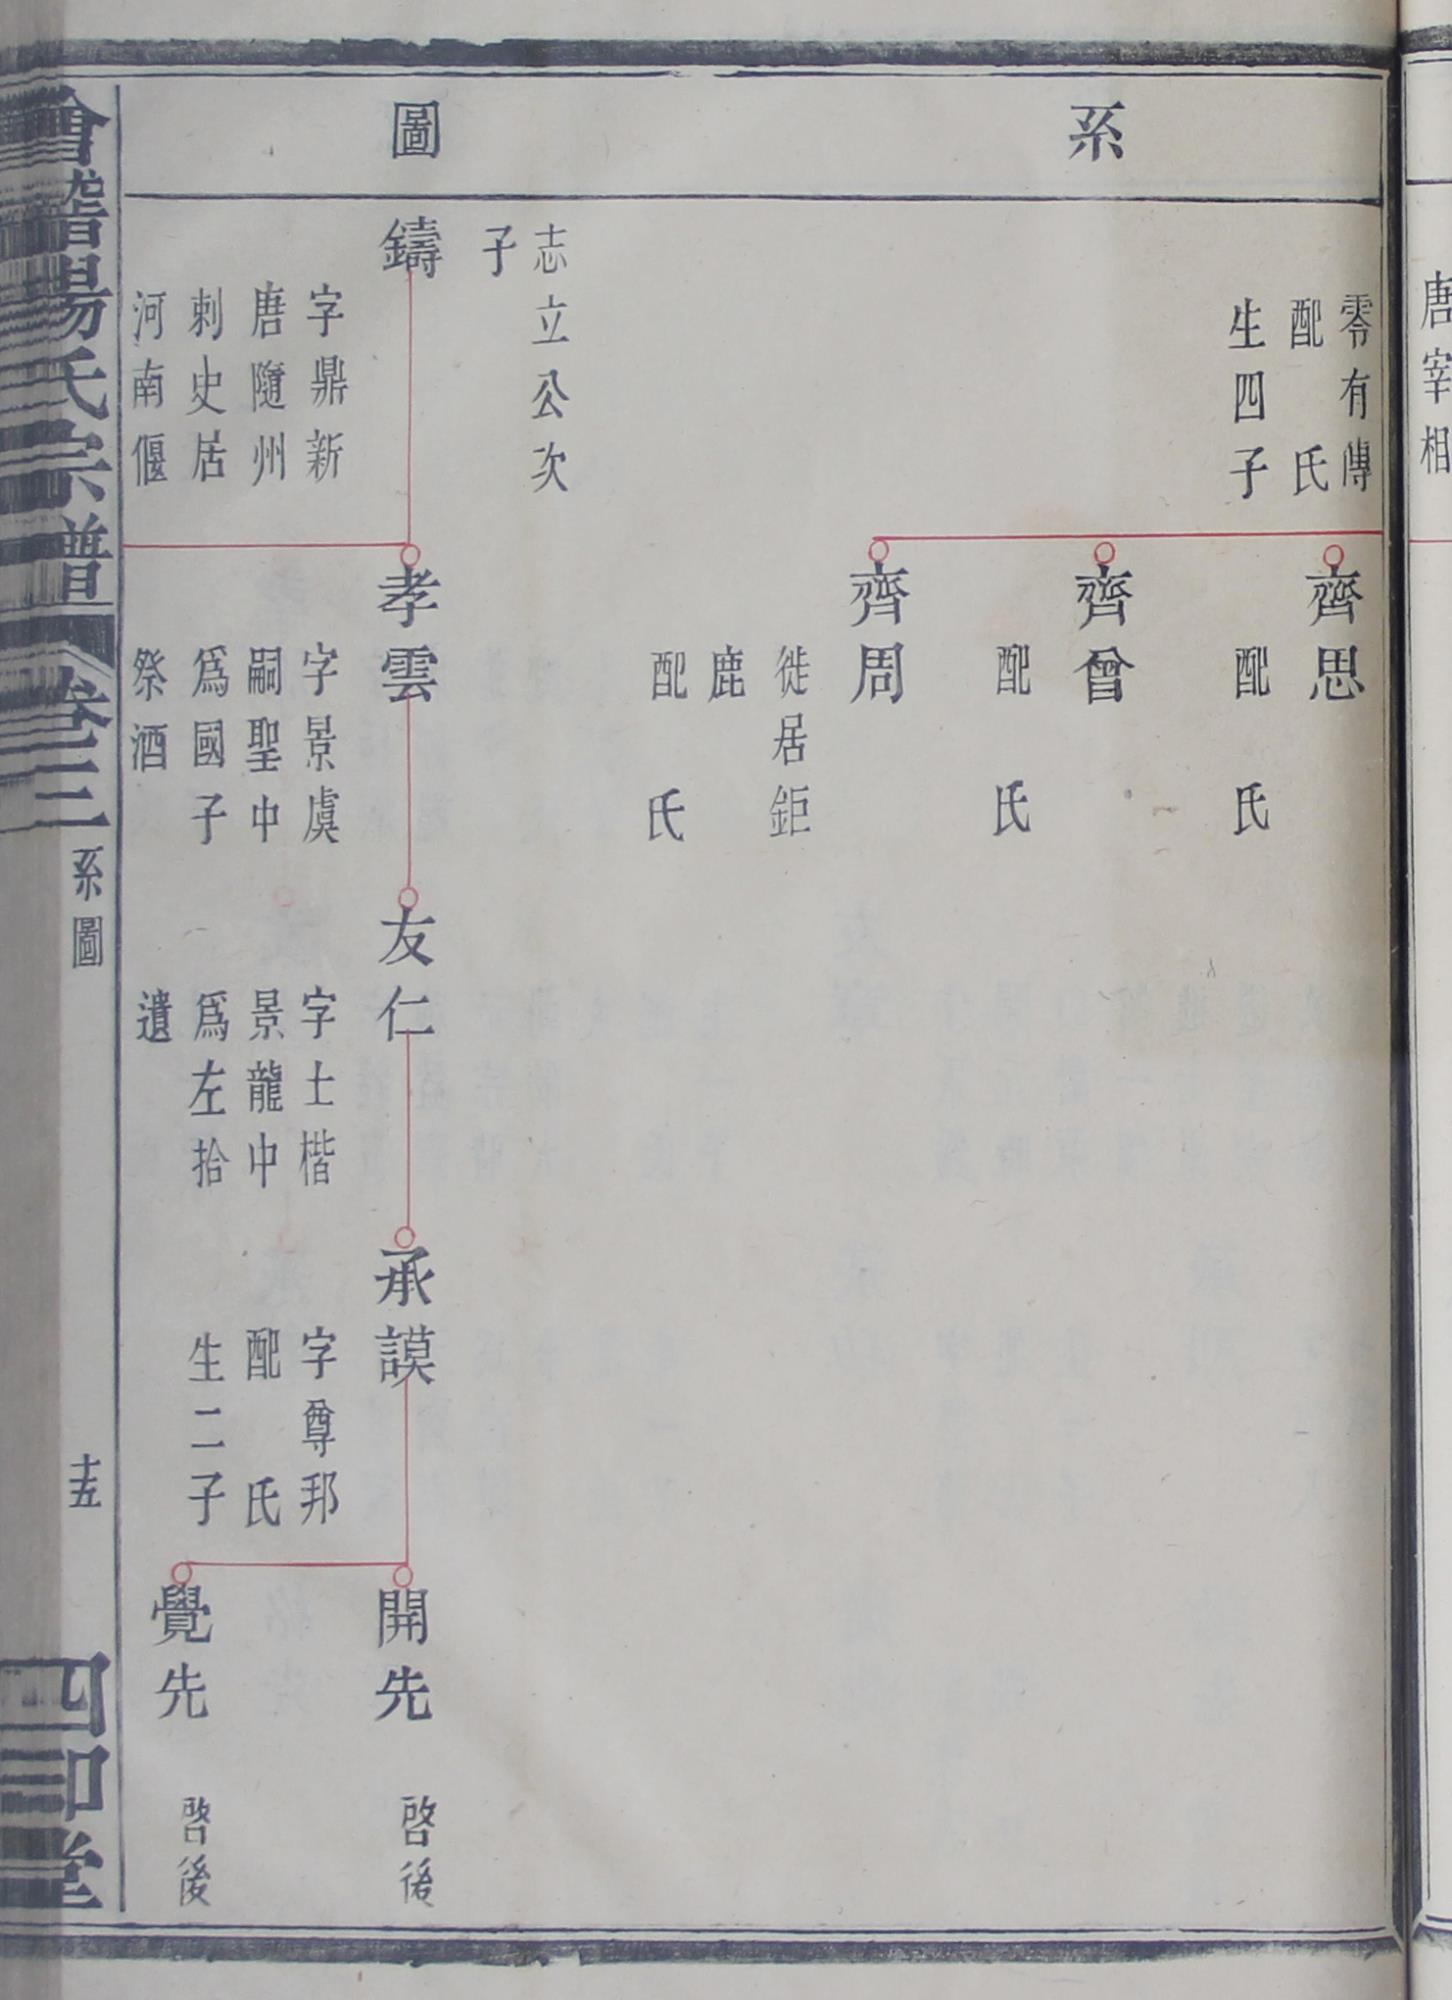 唐宰相
系圖
零有傳
配氏
生四子
齊思
配氏
齊曾
配氏
齊周
徙居鉅
鹿
配氏
志立公次
子
鑄
字鼎新
唐隨州
刺史居
河南偃
孝雲
字景虞
嗣聖中
為國子
祭酒
友仁
字士楷
景龍中
為左拾
遺
承謨
字尊邦
配氏
生二子
開先
啓後
覺先
啓後
會稽楊氏宗譜
卷三
系圖
十五
四知堂